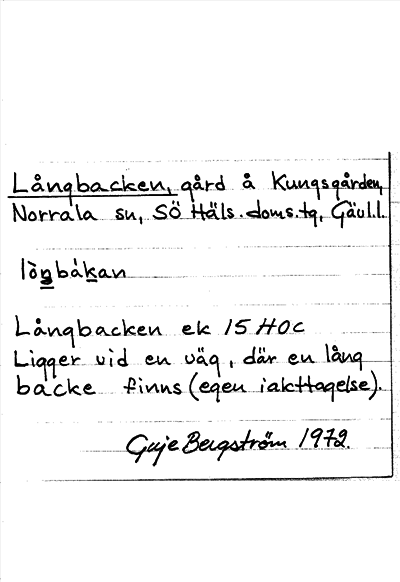 Långbacken, gård å Kungsgården,
Norrala sn, SÖ Häls. doms.tg, Gävl.l.
lòn̲bák̲an
Långbacken ek 15 HOC
Ligger vid en väg, där en lång
backe finns (egen iakttagelse).
Bergström 1972.